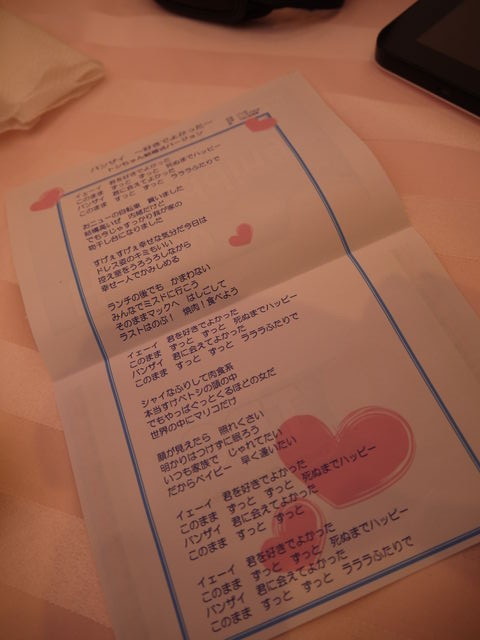 バンザイ ～好きでよかった～
トシちゃん結婚式バージョン
イェーイ 君を好きでよかった
このまま ずっと ずっと 死ぬまでハッピー
バンザイ 君に会えてよかった
このまま ずっと ずっと ラララふたりで
おニューの自転車 買いました
結構高いぜ 内緒だけど
でも今じゃすっかり我が家の
物干し台になりました
すげぇすげぇ幸せな気分だ今日は
ドレス姿のキミもいい
控え室をうろうろしながら
幸せ一人でかみしめる
ランチの後でも かまわない
みんなでミスドに行こう
そのままマックへ はしごして
ラストはのぶ! 焼肉!食べよう
イェーイ 君を好きでよかった
このまま ずっと ずっと 死ぬまでハッピー
バンザイ 君に会えてよかった
このまま ずっと ずっと ラララふたりで
シャイなふりして肉食系
本当すけベトシの頭の中
でもやっぱぐっとくるほどの女だ
世界の中にマリコだけ
顔が見えたら 照れくさい
明かりはつけずに眠ろう
いつも家族で じゃれてたい
だからベイビー 早く逢いたい
イェーイ 君を好きでよかった
このまま ずっと ずっと 死ぬまでハッピー
バンザイ 君に会えてよかった
このまま ずっと ずっと
イェーイ 君を好きでよかった
このまま ずっと ずっと 死ぬまでハッピー
バンザイ 君に会えてよかった
このまま ずっと ずっと ラララふたりで